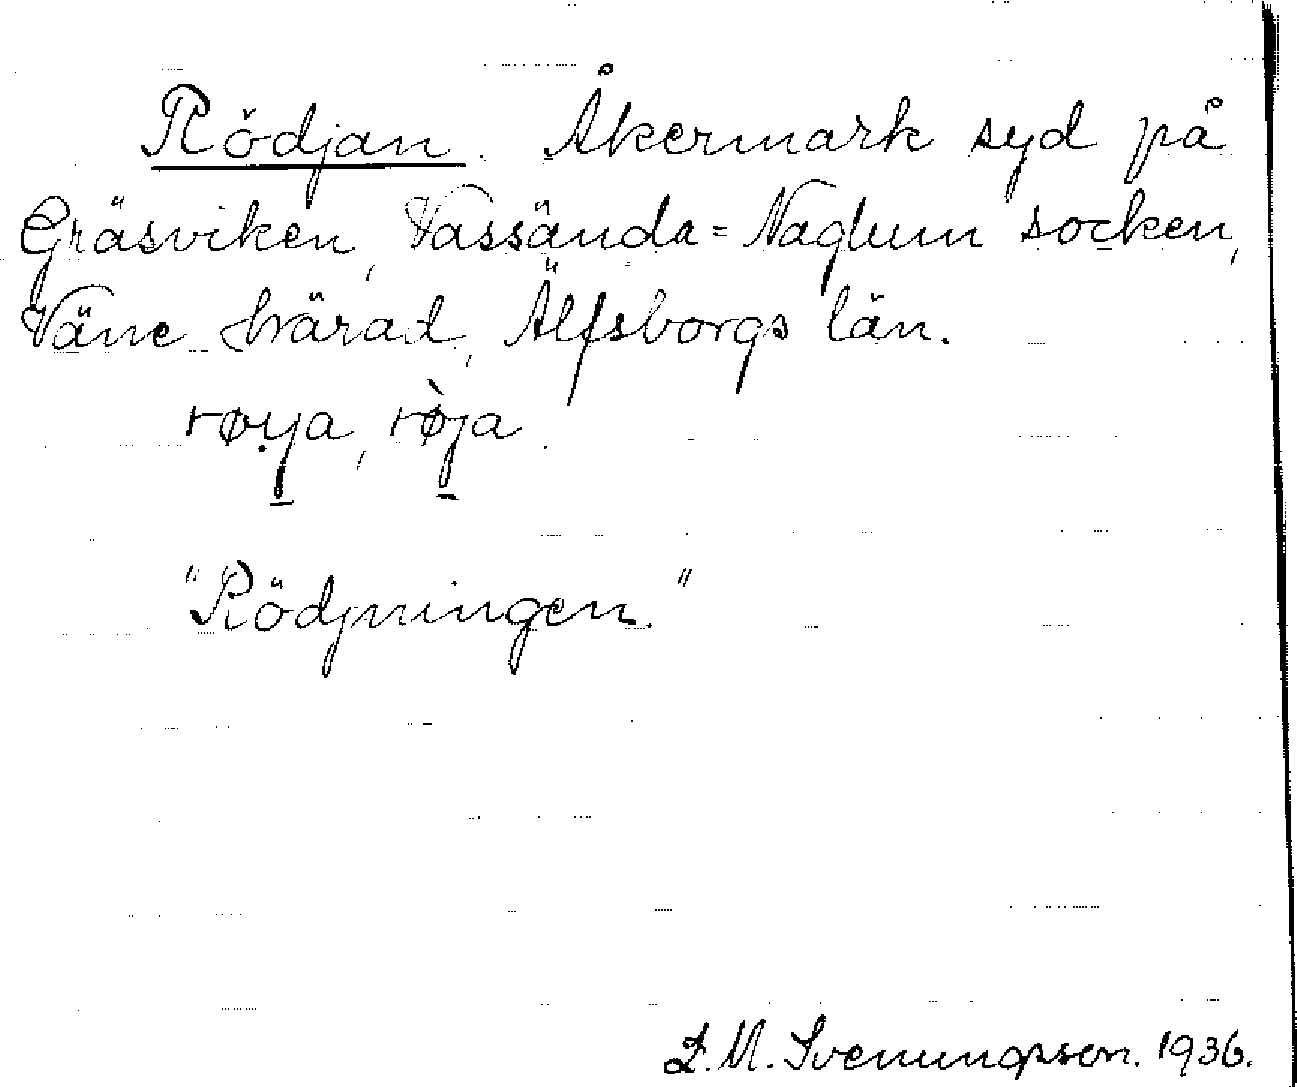 Rödjan. Åkermark syd på
Gräsviken, Vassända=Naglum socken,
Väne härad, Älfsborgs län.
røya, rø̀ja.
"Rödjningen."
F. M. Svenungsson. 1936.